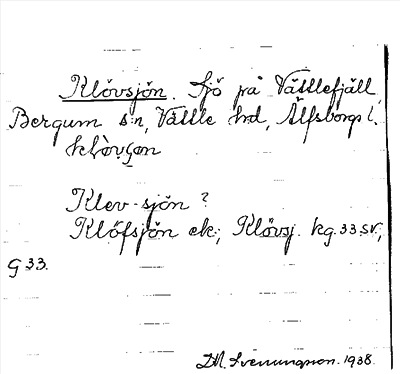 Klövsjön. Sjö på Vättlefjäll,
Bergum s:n, Vättle hrd, Älfsborgs l.
Klev-sjön?
Klöfsjön ek; Klövsj. kg. 33 SV,
G 33.
1938.